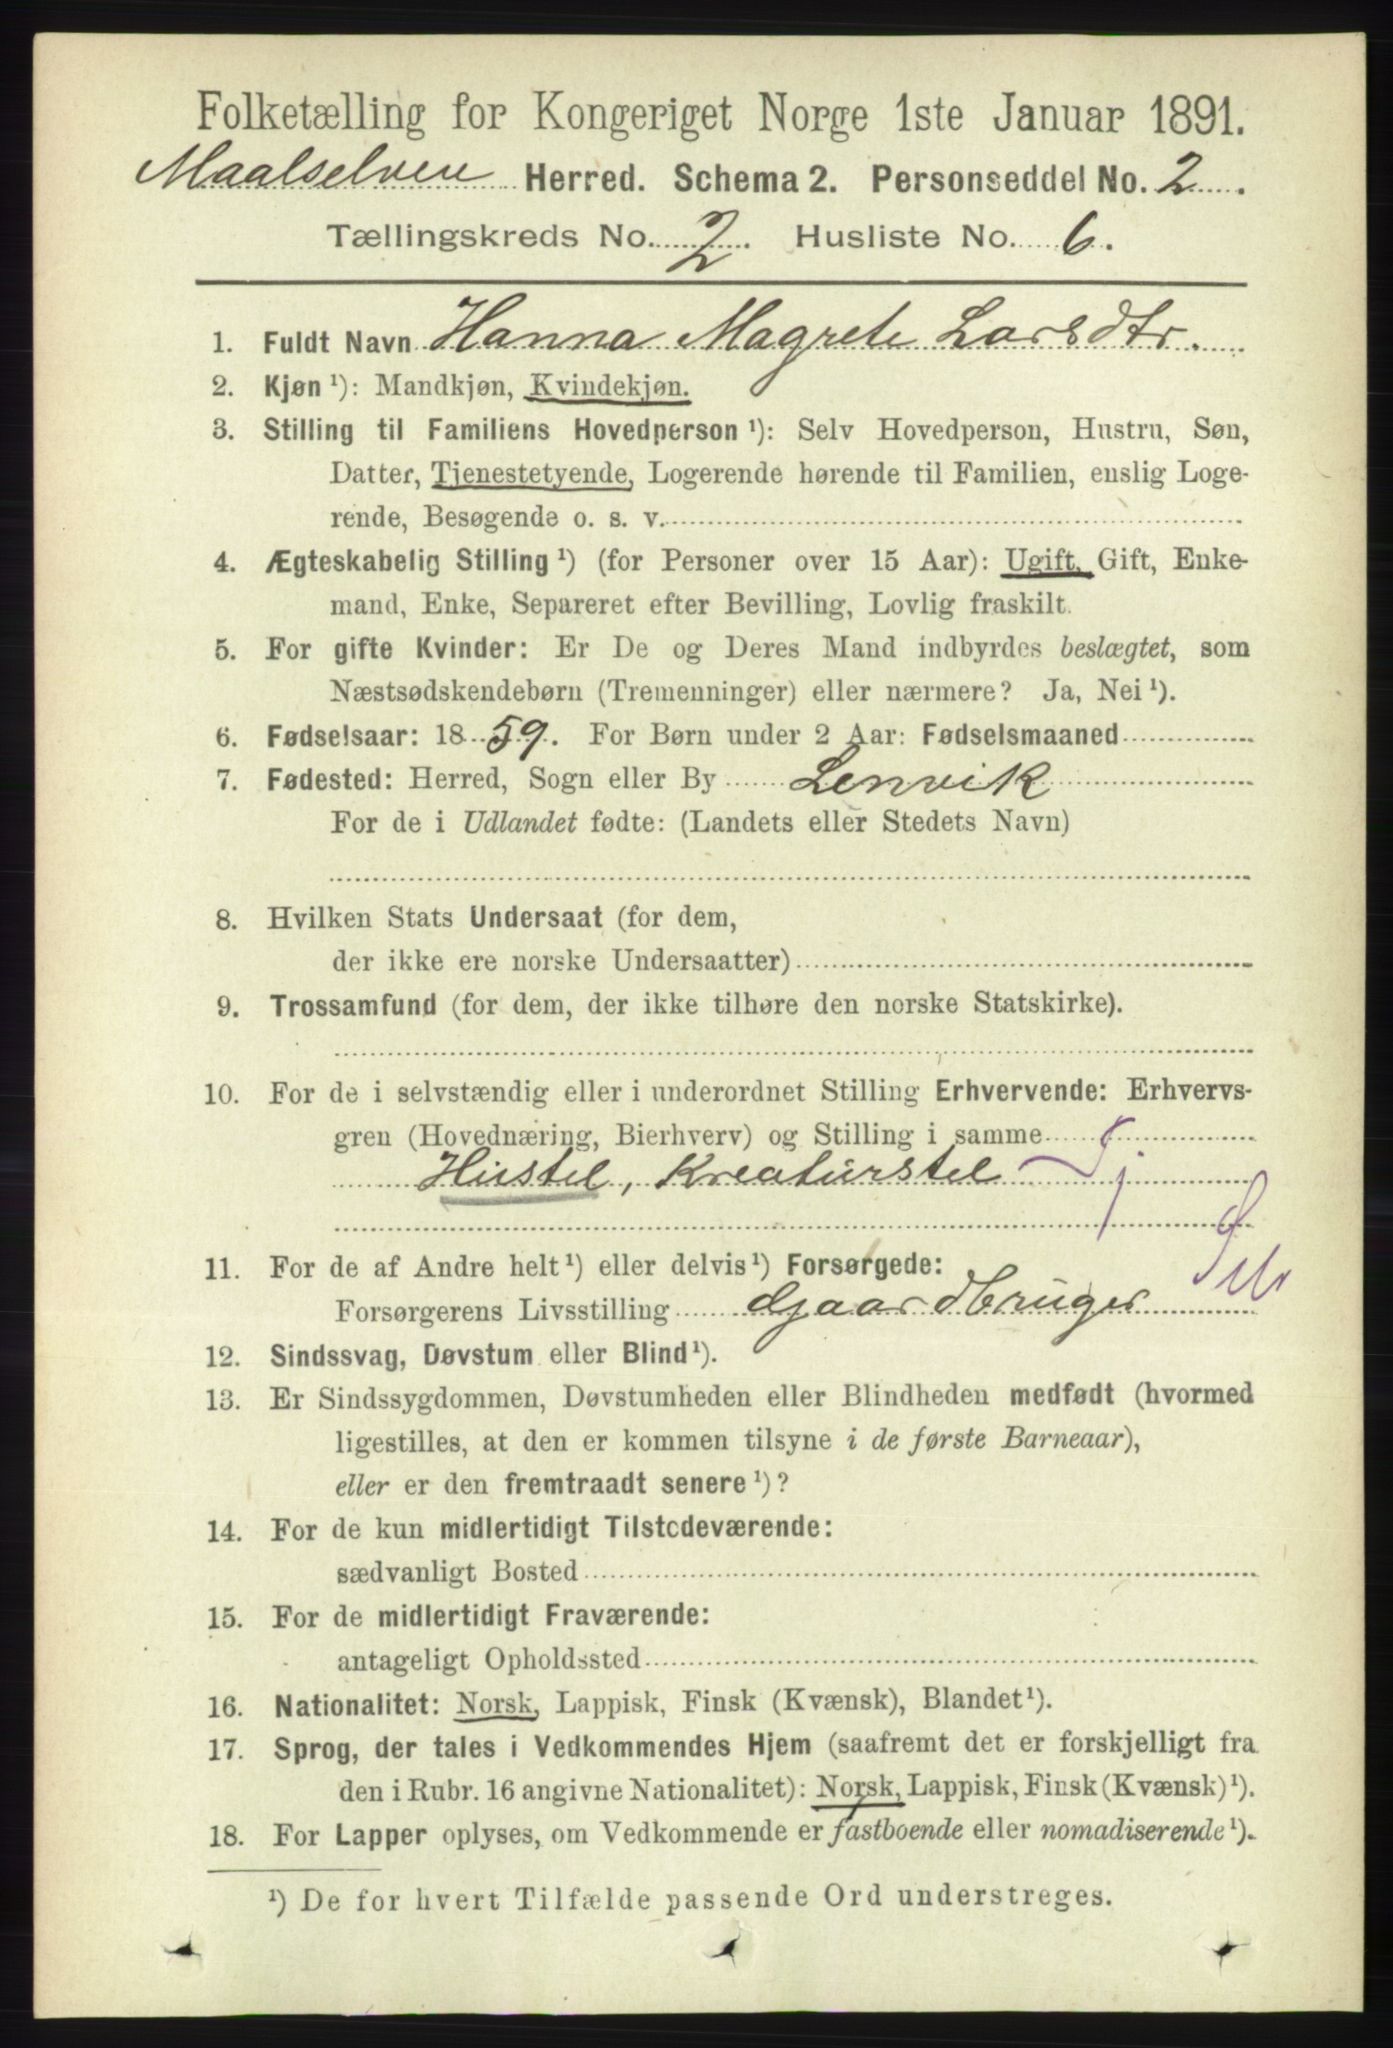 Folketælling for Kongeriget Norge 1ste Januar 1891.
Maalselven Herred. Schema 2. Personseddel No. 2.
Tællingskreds No. 2. Husliste No. 6.
1. Fuldt Navn Hanna Magrete Larsdtr.
2. Kjøn ¹): Mandkjøn, Kvindekjøn.
3. Stilling til Familiens Hovedperson ¹): Selv Hovedperson, Hustru, Søn,
Datter, Tjenestetyende, Logerende hørende til Familien, enslig Loge-
rende, Besøgende o. s. v.
4. Ægteskabelig Stilling ¹) (for Personer over 15 Aar): Ugift, Gift, Enke-
mand, Enke, Separeret efter Bevilling, Lovlig fraskilt.
5. For gifte Kvinder: Er De og Deres Mand indbyrdes beslægtet, som
Næstsødskendebørn (Tremenninger) eller nærmere? Ja, Nei ¹).
6. Fødselsaar: 1859. For Børn under 2 Aar: Fødselsmaaned
7. Fødested: Herred, Sogn eller By Lenvik
For de i Udlandet fødte: (Landets eller Stedets Navn)
8. Hvilken Stats Undersaat (for dem,
der ikke ere norske Undersaatter)
9. Trossamfund (for dem, der ikke tilhøre den norske Statskirke).
10. For de i selvstændig eller i underordnet Stilling Erhvervende: Erhvervs-
gren (Hovednæring, Bierhverv) og Stilling i samme
Hustel, Kreaturstel Tj
11. For de af Andre helt ¹) eller delvis ¹) Forsørgede:
Forsørgerens Livsstilling Gjaardbruger
12. Sindssvag, Døvstum eller Blind ¹).
13. Er Sindssygdommen, Døvstumheden eller Blindheden medfødt (hvormed
ligestilles, at den er kommen tilsyne i de første Barneaar),
eller er den fremtraadt senere ¹)?
14. For de kun midlertidigt Tilstedeværende:
sædvanligt Bosted
15. For de midlertidigt Fraværende:
antageligt Opholdssted
16. Nationalitet: Norsk, Lappisk, Finsk (Kvænsk), Blandet ¹).
17. Sprog, der tales i Vedkommendes Hjem (saafremt det er forskjelligt fra
den i Rubr. 16 angivne Nationalitet): Norsk, Lappisk, Finsk (Kvænsk) ¹).
18. For Lapper oplyses, om Vedkommende er fastboende eller nomadiserende ¹).
¹) De for hvert Tilfælde passende Ord understreges.